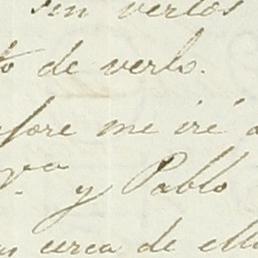 sin verlos
to de verlo.
me iré a
y Pablo
cerca de ello